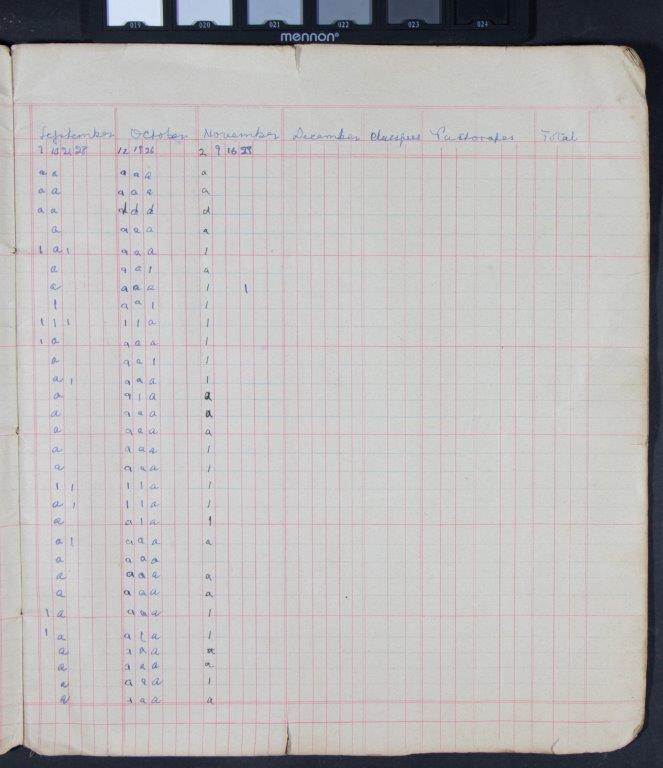 019 020 021 022 023 024
mennon®
September October November December Total
12 19 26 2 9 16
a a a a a a
a a a a a a
a a d d d d
a a a a a
1 a 1 a a a 1
a a a 1 a
a a a a 1 1
1 a a 1 1
1 1 1 1 1 a 1
1 a a a a 1
a a a 1 1
a 1 a a a 1
a a 1 a a
a a a a a
a a a a a
a a a a 1
a a a a 1
1 1 1 1 a 1
a 1 1 1 a 1
a a 1 a 1
a 1 a a a a
a a a a
a a a a a
a a a a a
1 a a a a 1
1 a a 1 a 1
a a a a
a a a a
a a a a 1
a a a a